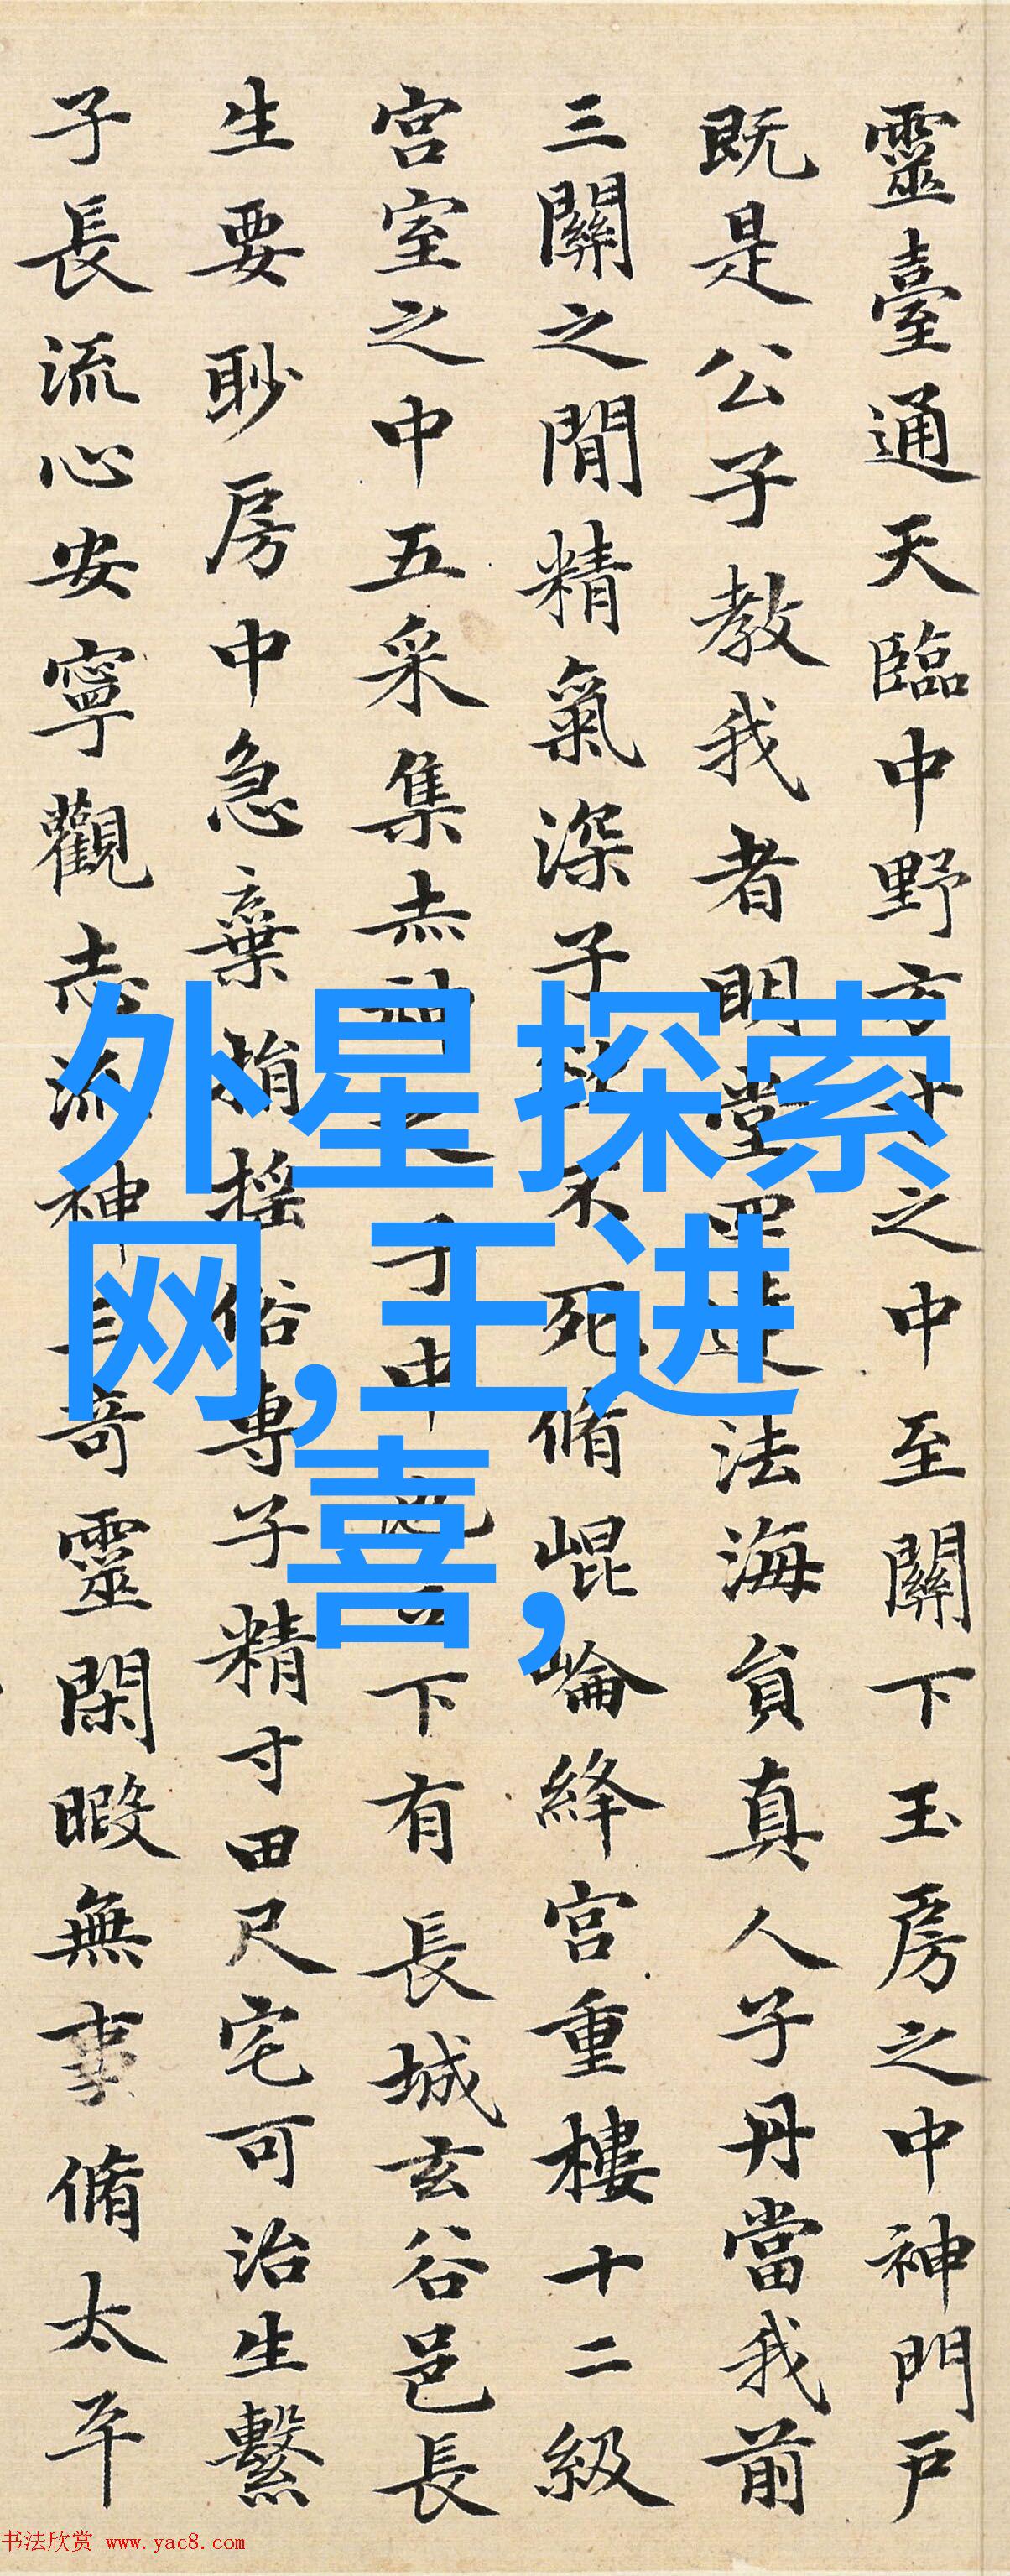 靈臺通天臨中野方寸之中至關下玉房之中神門戶
既是公子教我者明堂四達法海負真人子丹當我前
三關之間精氣深子欲不死脩崐崘絳宮重樓十二級
宮室之中五采集赤神之子中池立下有長城玄谷邑長
生要眇房中急棄捐搖俗專子精寸田尺宅可治生繫
子長流心安寧觀志流神三奇靈閑暇無事脩太平
外星探索
网,王进
喜,
书法欣赏 www.yac8.com